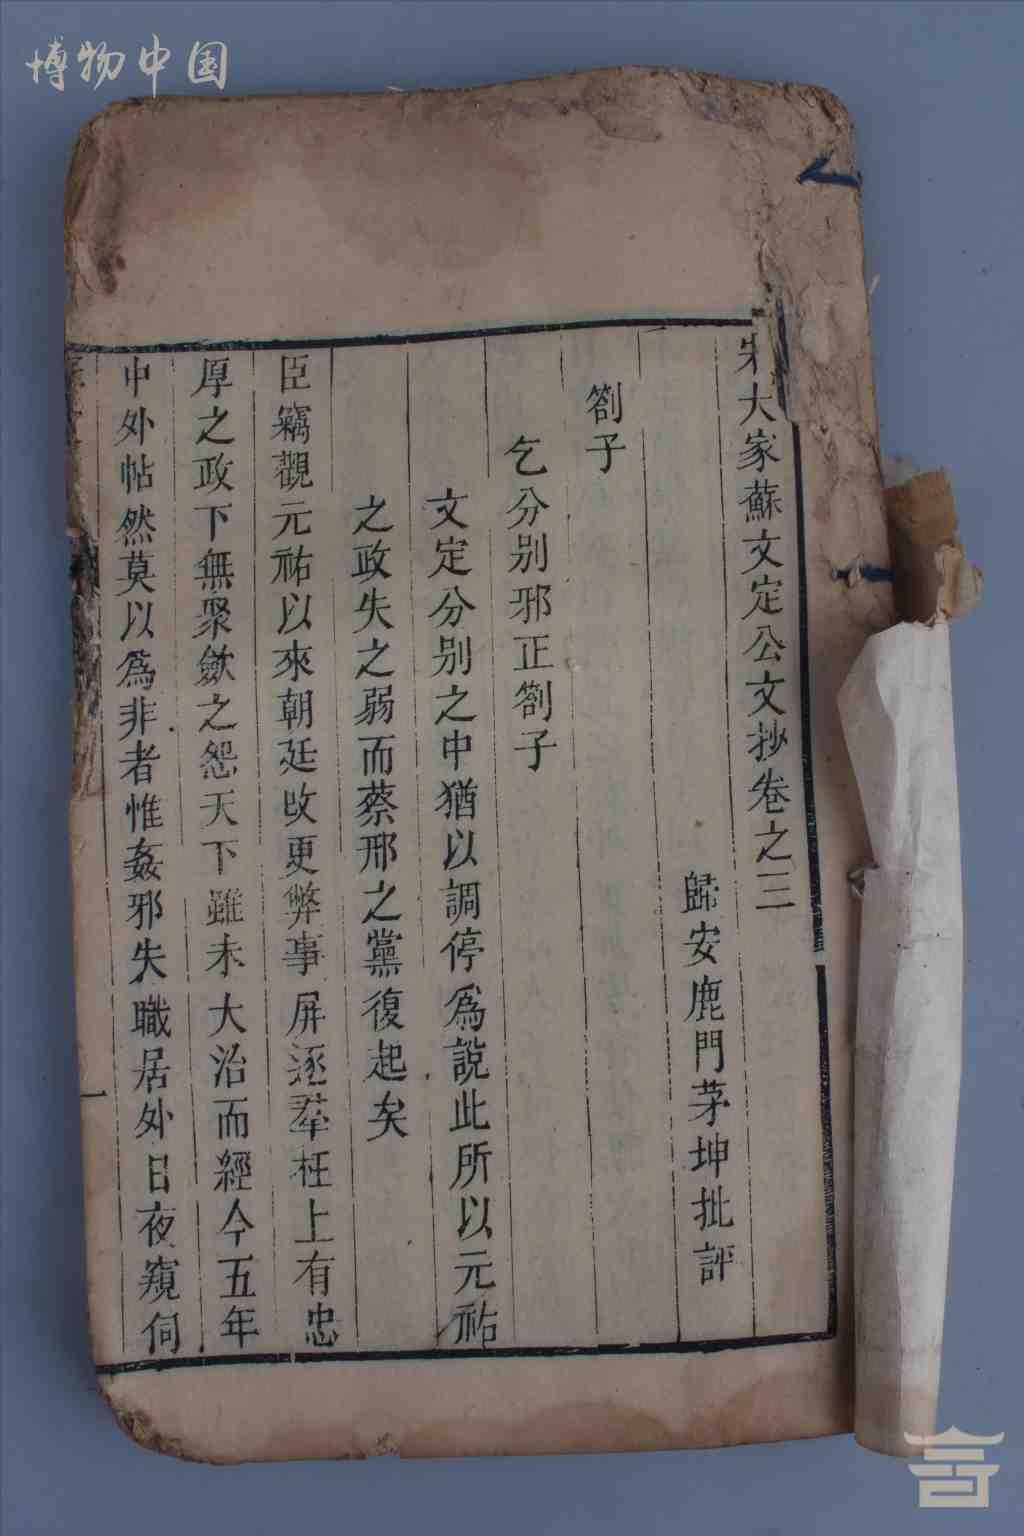 博物中国
宋大家蘇文定公文抄卷之三
歸安鹿門茅坤批評
劄子
乞分別邪正劄子
文定分別之中猶以調停爲說此所以元祐
之政失之弱而蔡邢之黨復起矣
臣竊觀元祐以來朝廷改更弊事屏逐羣枉上有忠
厚之政下無聚歛之怨天下雖未大治而經今五年
中外帖然莫以爲非者惟姦邪失職居外日夜窺伺